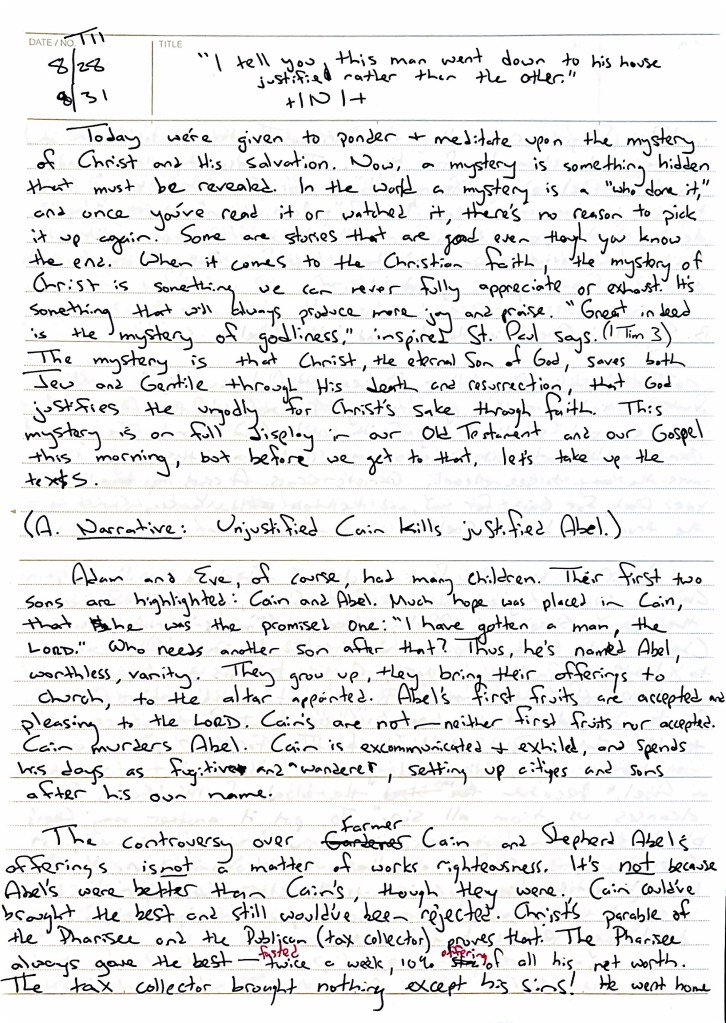 DATE / NO. T11
8/28
8/31
TITLE
"I tell you, this man went down to his house
justified rather than the other."
+INI+
Today we're given to ponder + meditate upon the mystery
of Christ and His salvation. Now, a mystery is something hidden
that must be revealed. In the world a mystery is a "who done it,"
and once you've read it or watched it, there's no reason to pick
it up again. Some are stories that are good even though you know
the end. When it comes to the Christian faith, the mystery of
Christ is something we can never fully appreciate or exhaust. It's
something that will always produce more joy and praise. "Great indeed
is the mystery of godliness," inspired St. Paul says. (1 Tim 3)
The mystery is that Christ, the eternal Son of God, saves both
Jew and Gentile through His death and resurrection, that God
justifies the ungodly for Christ's sake through faith. This
mystery is on full display in our Old Testament and our Gospel
this morning, but before we get to that, let's take up the
texts.
(A. Narrative: Unjustified Cain kills justified Abel.)
Adam and Eve, of course, had many children. Their first two
sons are highlighted: Cain and Abel. Much hope was placed in Cain,
that he was the promised one: "I have gotten a man, the
LORD." Who needs another son after that? Thus, he's named Abel,
worthless, vanity. They grow up, they bring their offerings to
church, to the altar appointed. Abel's first fruits are accepted and
pleasing to the LORD. Cain's are not—neither first fruits nor accepted.
Cain murders Abel. Cain is excommunicated + exhiled, and spends
his days as fugitive and "wanderer", setting up cityes and sons
after his own name.
The controversy over Gardener Farmer Cain and Shepherd Abel's
offerings is not a matter of works righteousness. It's not because
Abel's were better than Cain's, though they were. Cain could've
brought the best and still would've been rejected. Christ's parable of
the Pharisee and the Publican (tax collector) proves that. The Pharisee
always gave the best — fasted twice a week, 10% offering of all his net worth.
The tax collector brought nothing except his sins! He went home